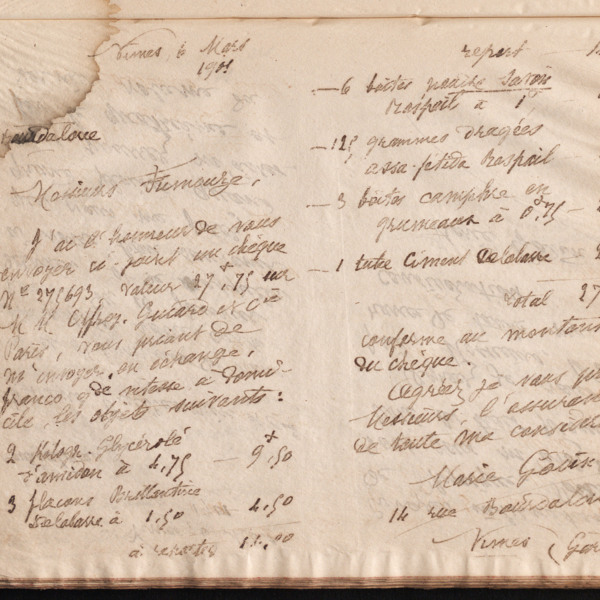 Nimes, 6 Mars
1901
Messieurs Fumouze,
J'ai l'honneur de vous
envoyer ci-joint un chèque
N° 275693, valeur 27 f 75 sur
M M. Offroy, Guiard et Cie
Paris, vous priant de
m'envoyer, en échange,
franco gde vitesse à domi-
cile, les objets suivants:
2 Kilogr. Glycérolé
d'amidon à 4,75 — 9 f,50
3 flacons Brillantine
Delabarre à 1,50 4,50
à reporter
report
— 6 boites poudre Savon
Raspail à 1 f
— 125 grammes dragées
assa-fetida Raspail
— 3 boites camphre en
grumeaux à 0f,75 —
— 1 tube Ciment Delabarre
Total 27
conforme au montant
du chèque.
Agréez je vous
Messieurs, l'assuran
de toute ma considé
Marie
14 rue Bourdalou
Nimes (Gar